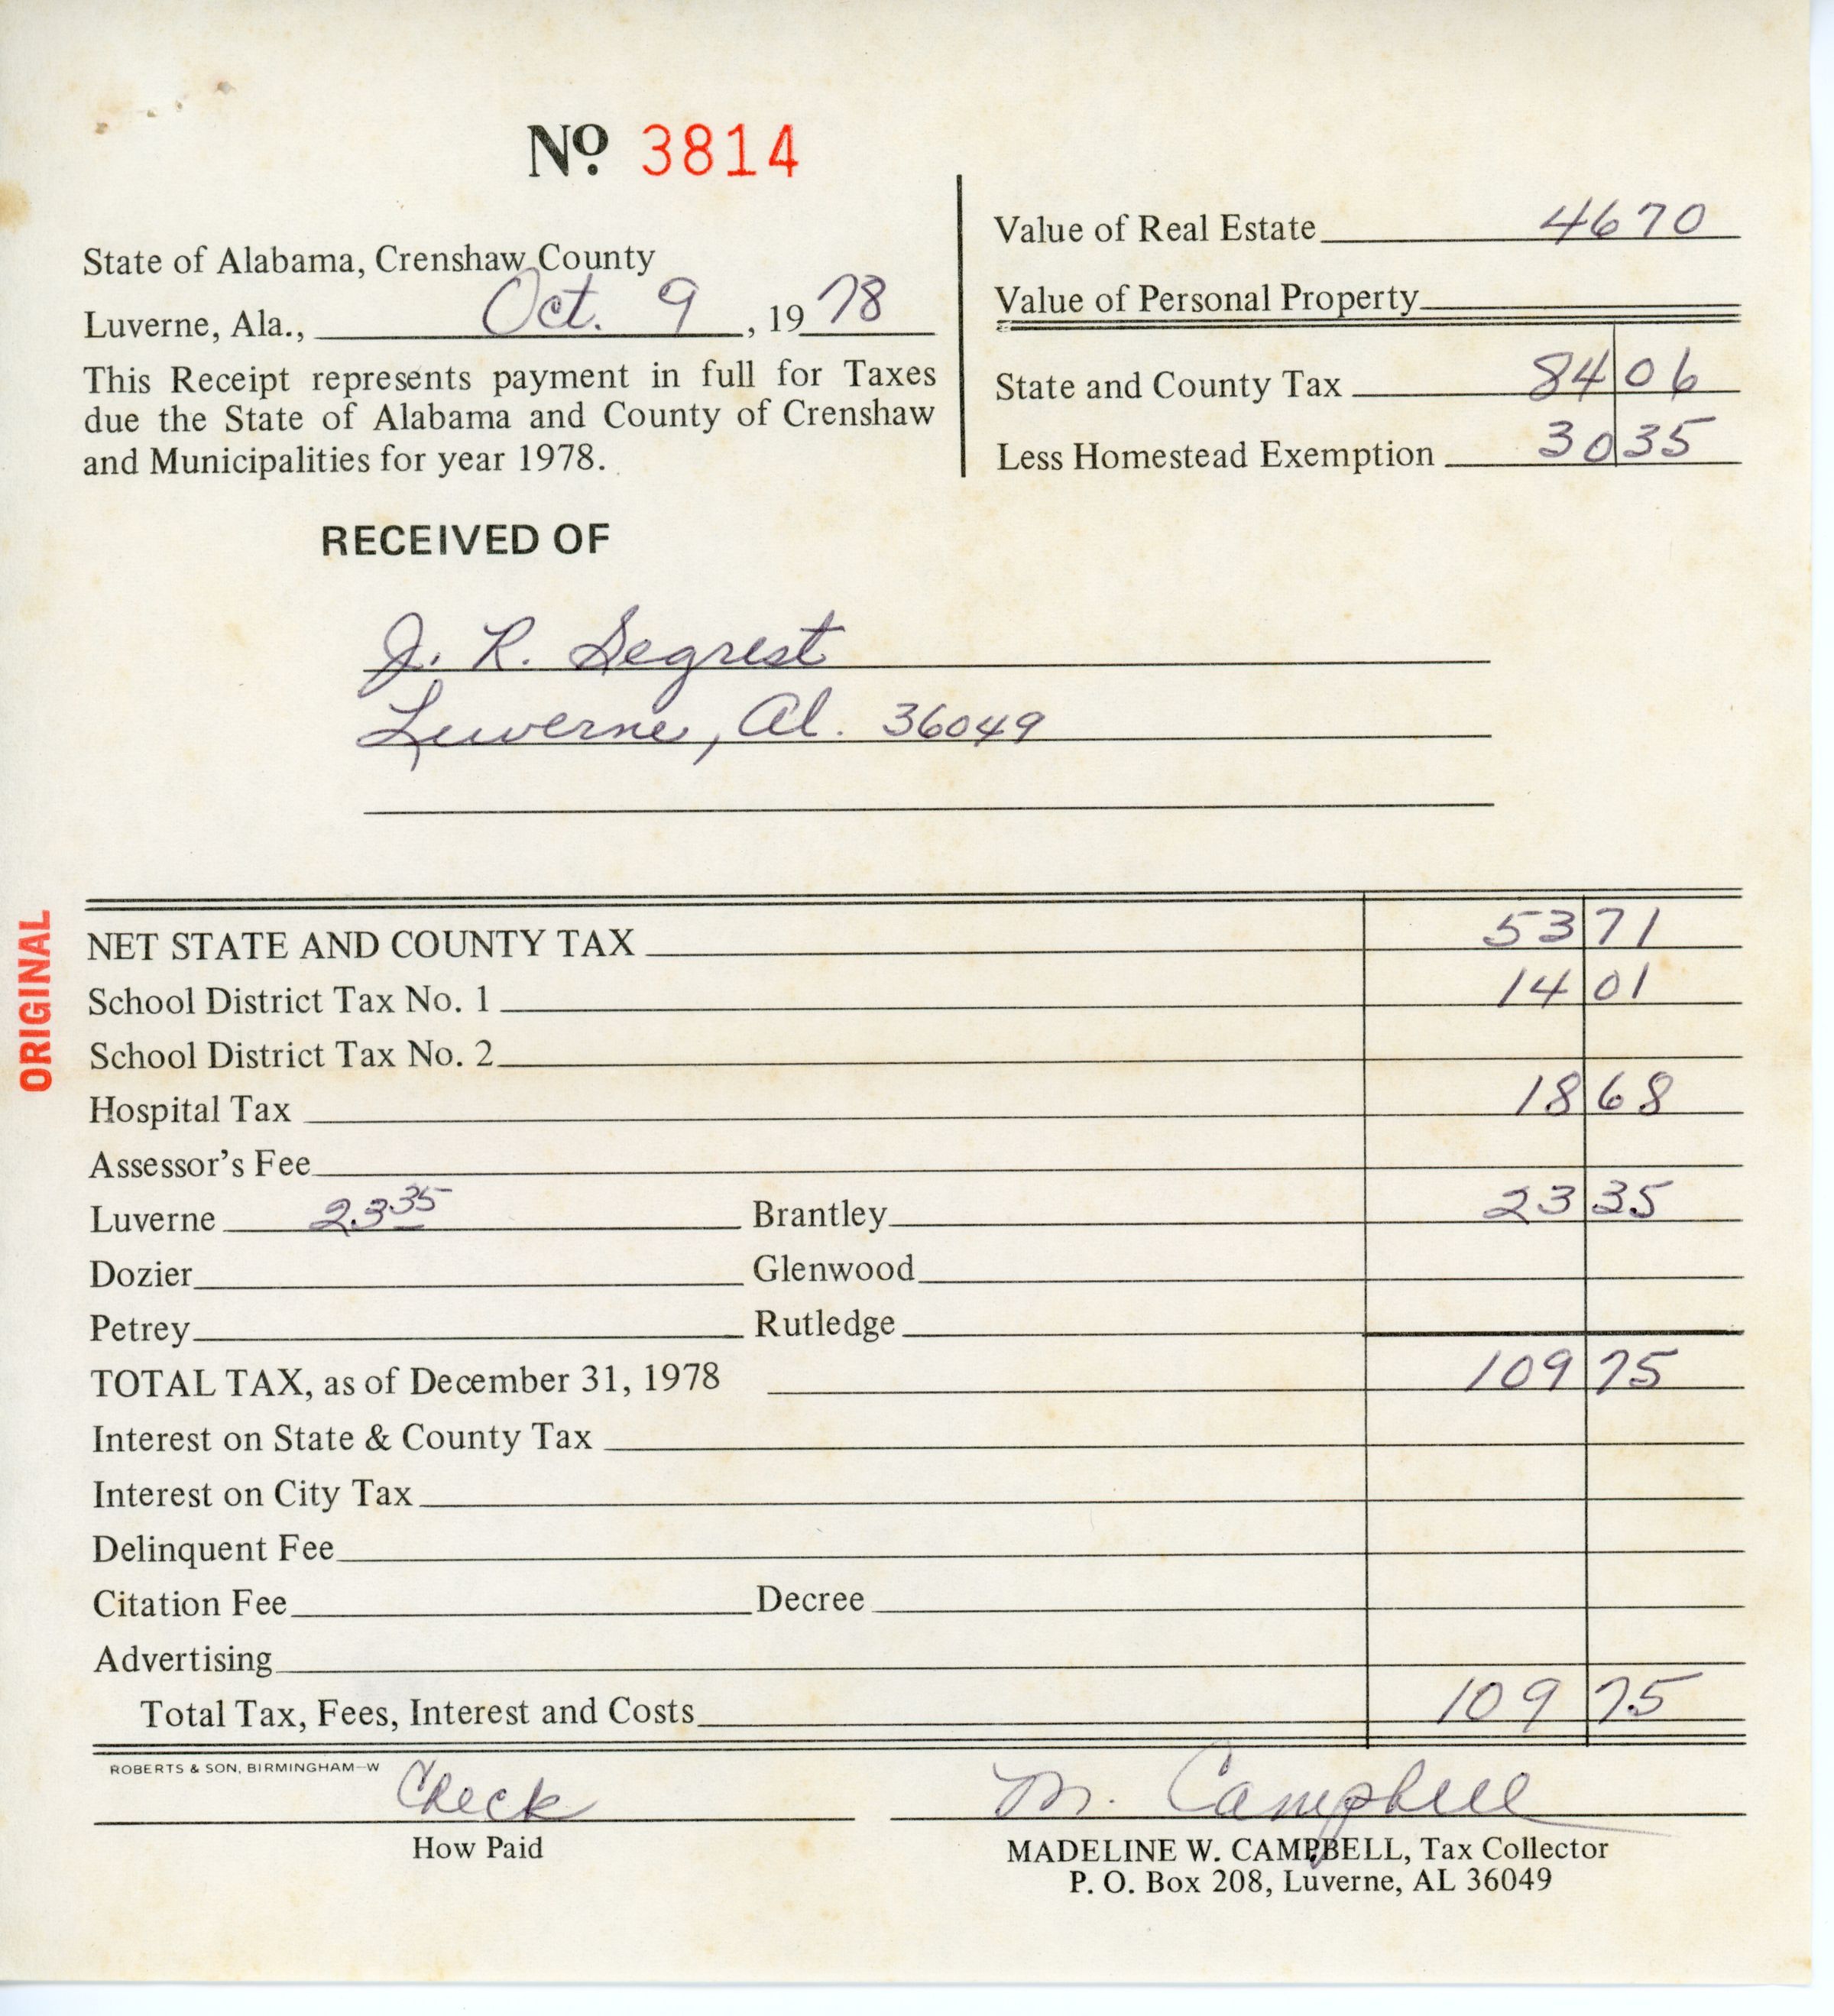 No. 3814
State of Alabama, Crenshaw County
Luverne, Ala., Oct. 9, 1978
This Receipt represents payment in full for Taxes
due the State of Alabama and County of Crenshaw
and Municipalities for year 1978.
Value of Real Estate 4670
Value of Personal Property
State and County Tax 84 06
Less Homestead Exemption 30 35
RECEIVED OF
J. R. Segrest
Luverne, Al. 36049
ORIGINAL
NET STATE AND COUNTY TAX 53 71
School District Tax No. 1 14 01
School District Tax No. 2
Hospital Tax 18 68
Assessor's Fee
Luverne 23 35 Brantley 23 35
Dozier Glenwood
Petrey Rutledge
TOTAL TAX, as of December 31, 1978 109 75
Interest on State & County Tax
Interest on City Tax
Delinquent Fee
Citation Fee Decree
Advertising
Total Tax, Fees, Interest and Costs 109 75
ROBERTS & SON, BIRMINGHAM-W
Check M. Campbell
How Paid MADELINE W. CAMPBELL, Tax Collector
P. O. Box 208, Luverne, AL 36049